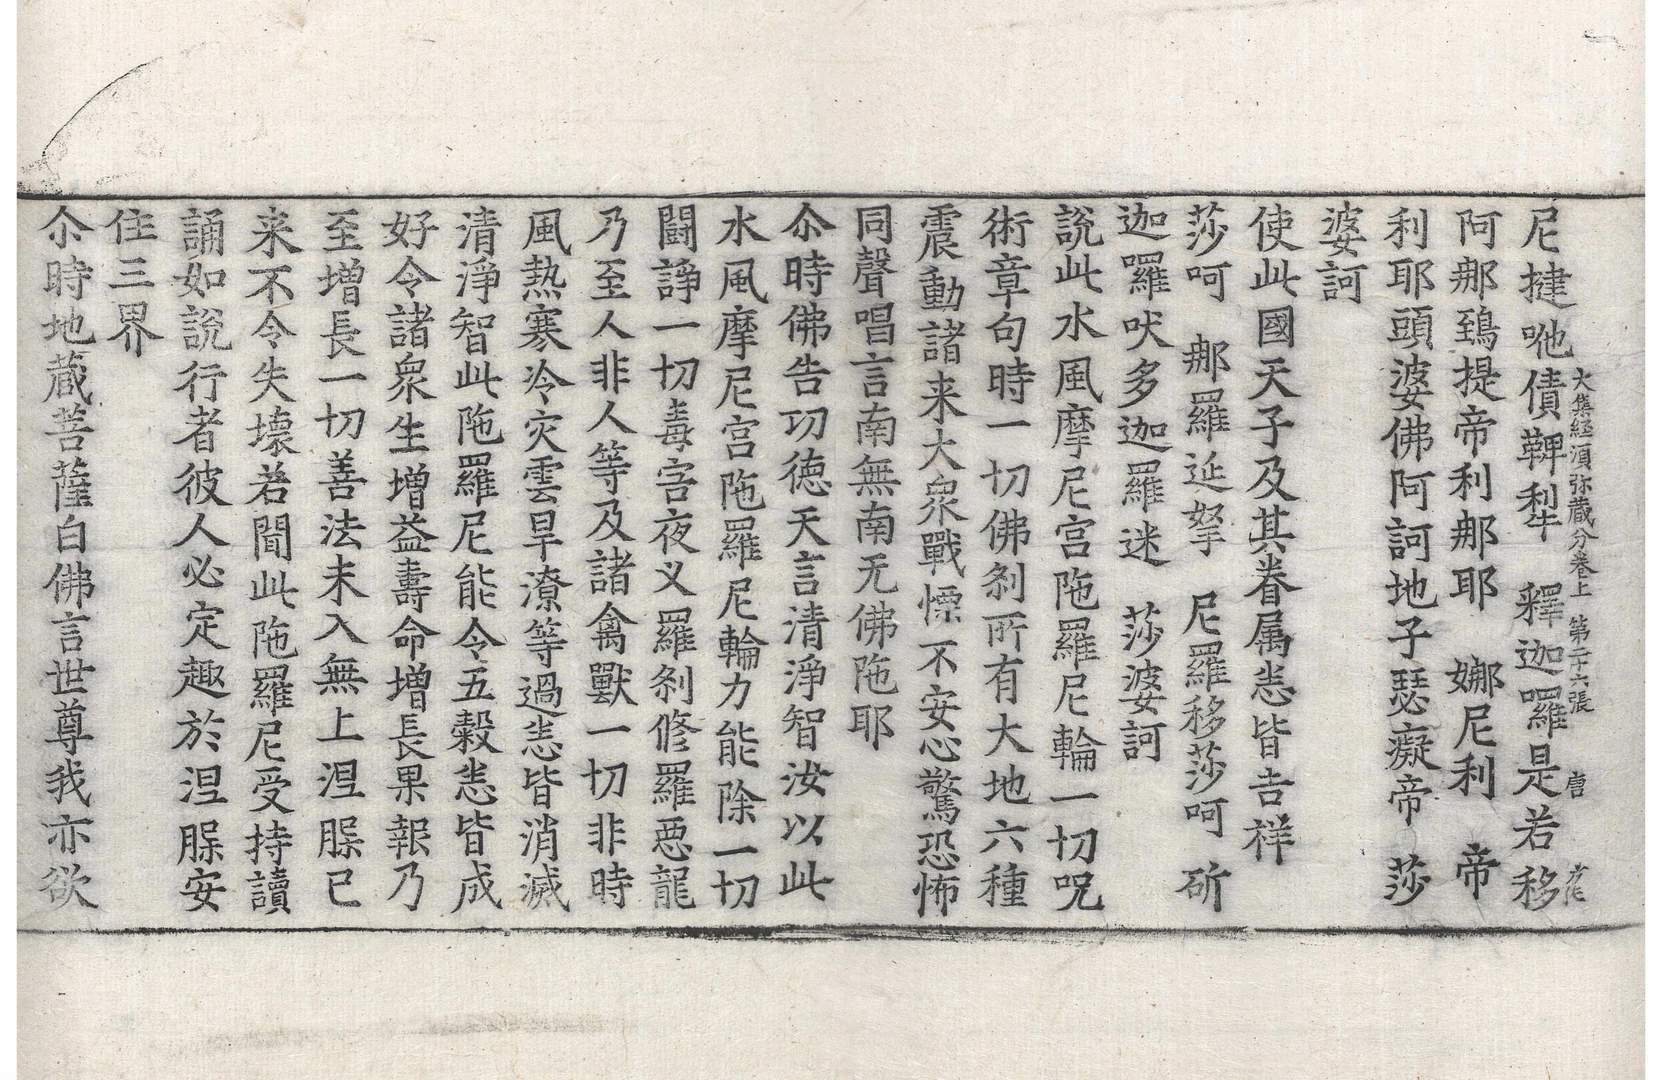 大集経湏弥蔵分卷上　第二十六張　唐
尼揵吔債鞞𤛆　釋迦囉是若移
阿那鵄提帝利那耶　娜尼利　帝
利耶頭婆佛阿訶地子瑟癡帝　莎
婆訶
使此國天子及其眷属恙皆吉祥
莎呵　那羅延拏　尼羅移莎呵　斫
迦囉吠多迦羅迷　莎婆訶
說此水風摩尼宫陁羅尼輪一切呪
術章句時一切佛刹所有大地六種
震動諸来大衆戰慄不安心驚恐怖
同聲唱言南無南无佛陁耶
尒時佛告功德天言清淨智汝以此
水風摩尼宫陁羅尼輪力能除一切
闘諍一切毒害夜义羅刹修羅惡龍
乃至人非人等及諸禽獸一切非時
風熱寒冷灾雲旱潦等過恙皆消滅
清淨智此陁羅尼能令五穀恙皆成
好令諸衆生增益壽命增長果報乃
至增長一切善法未入無上涅脲已
来不令失壞若聞此陁羅尼受持讀
誦如說行者彼人必定趣於涅脲安
住三界
尒時地蔵菩薩白佛言世尊我亦欲